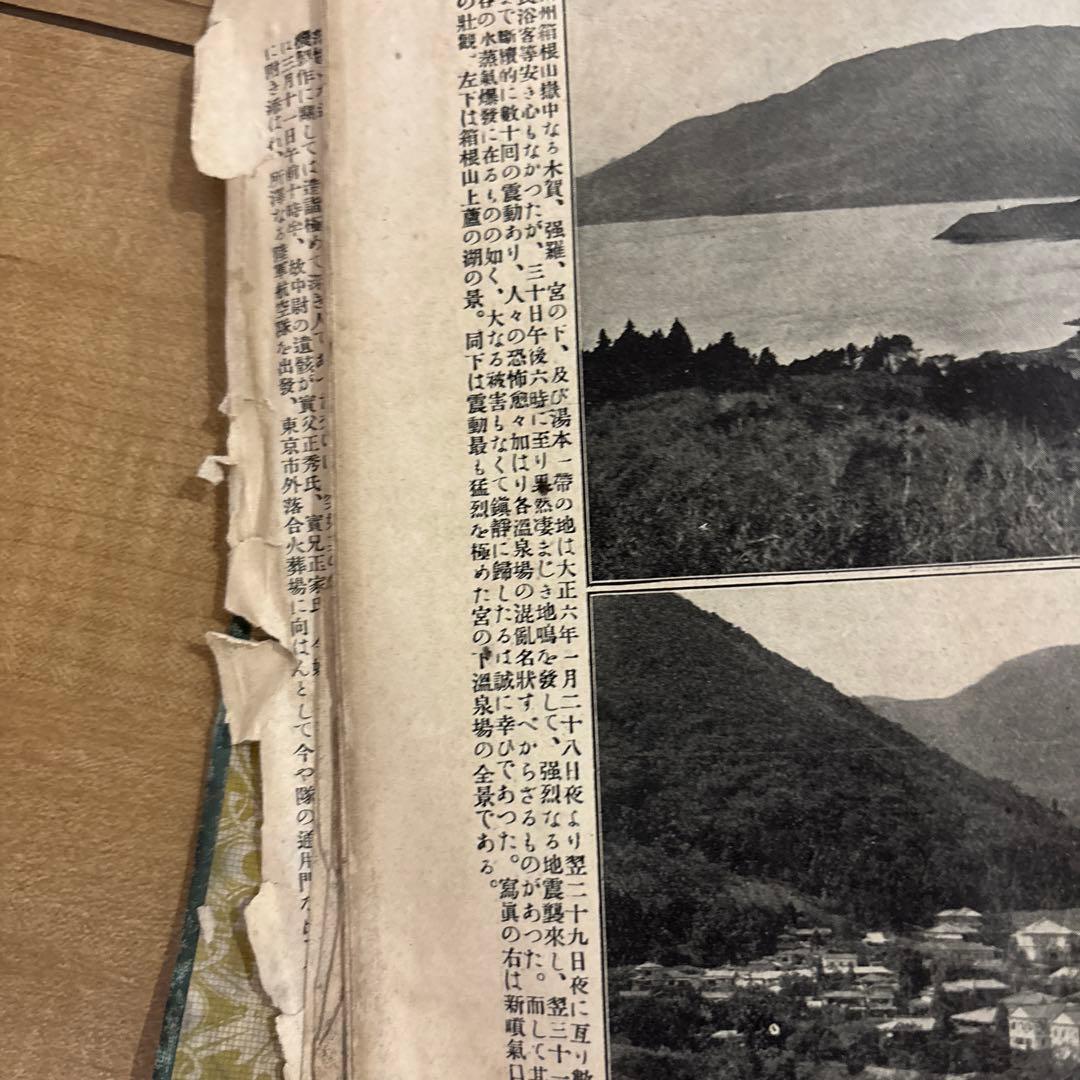 州箱根山嶽中なる木賀、强羅、宮の下、及び湯本一帶の地は大正六年一月二十八日夜より翌二十九日夜に亙り數
浴客等安き心もなかつたが、三十日午後六時に至り果然凄まじき地鳴を發して、强烈なる地震襲來し、翌三十一
で斷續的に數十回の震動あり、人々の恐怖愈々加はり各溫泉場の混亂名狀すべからざるものがあつた。而して其
谷の水蒸氣爆發に在るものの如く、大なる被害もなくて鎭靜に歸したるは誠に幸ひであつた。寫眞の右は新噴氣口
の壯觀。左下は箱根山上蘆の湖の景。同下は震動最も猛烈を極めた宮の下溫泉場の全景である。
機製作に關しては造詣極めて深き人であ
は三月十一日午前十時半、故中尉の遺骸が實父正秀氏、實兄正家氏
に附き添はれ、所澤なる陸軍航空隊を出發、東京市外落合火葬場に向はんとして今や隊の通用門